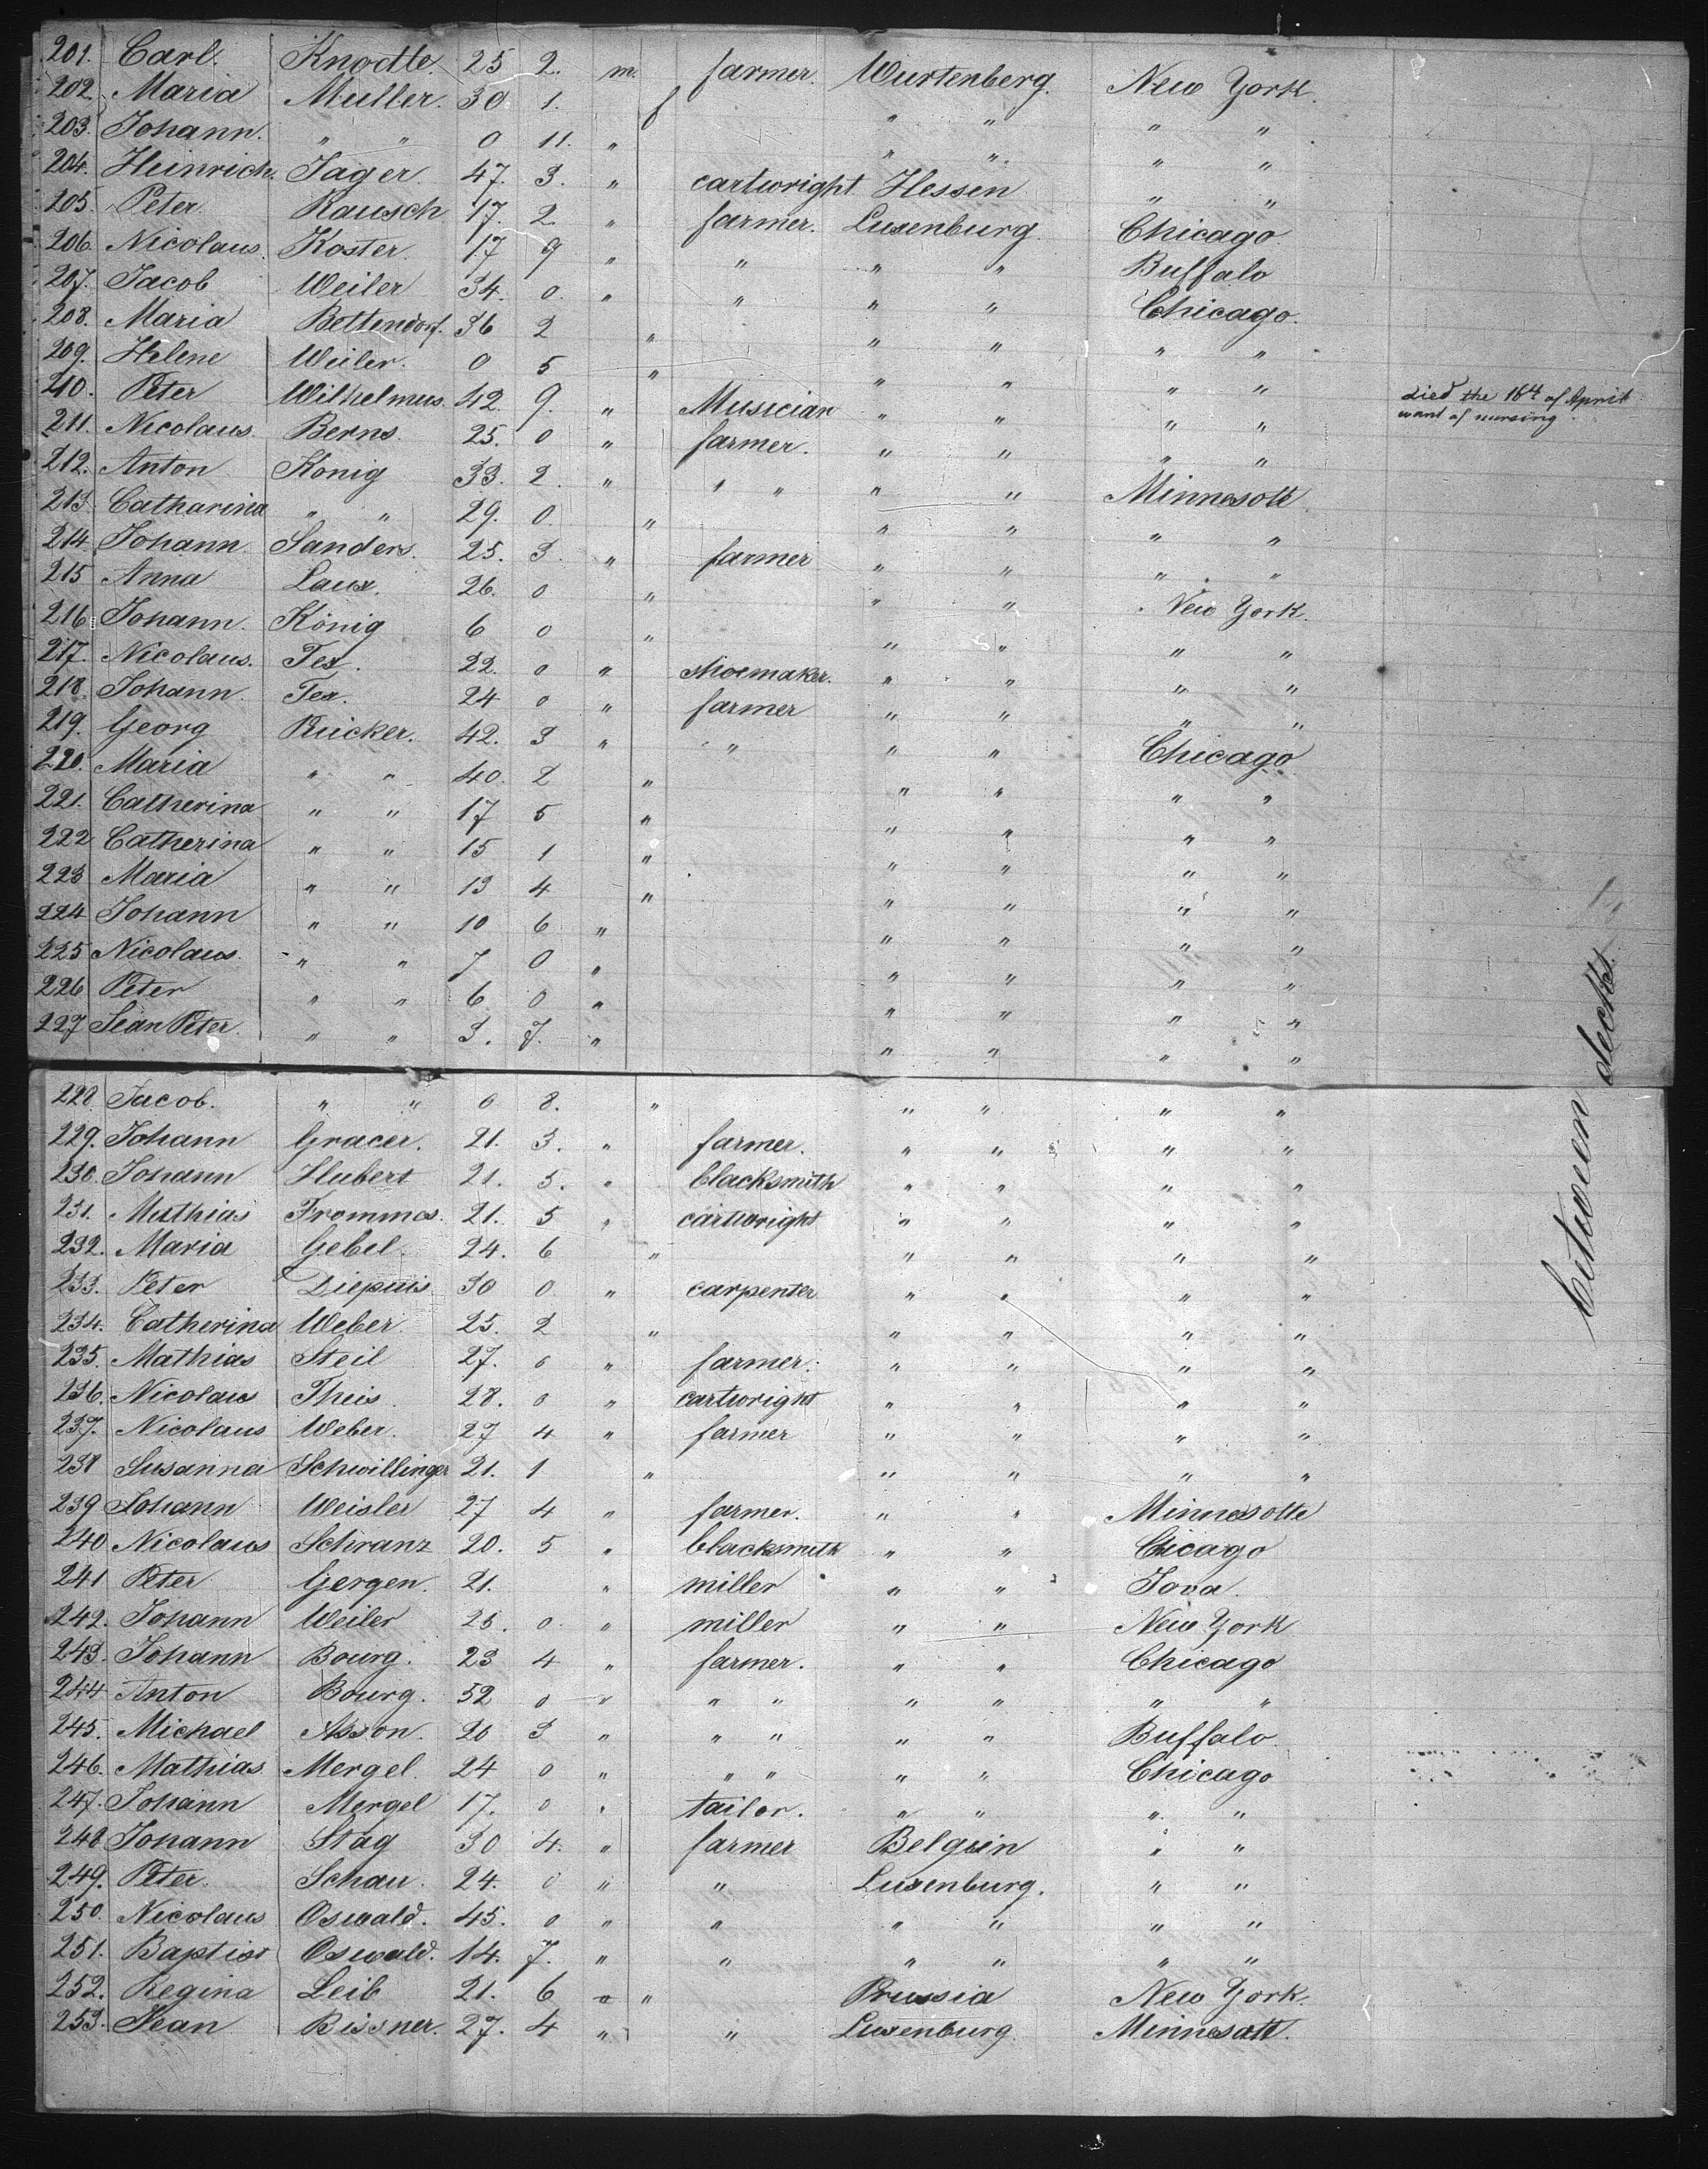 201. Carl. Knodtle. 25 2. m. farmer. Wurtenberg. New York.
202. Maria Muller. 30. 1. f " " " "
203. Johann. " " 0 11. " " ". " "
204. Heinrich. Jager. 47. 3. " cartwright Hessen " "
205. Peter. Rausch 17. 2. " farmer. Luxenburg. Chicago.
206. Nicolaus. Koster. 17 9 " " " " Buffalo
207. Jacob Weiler 34. 0. " " " " Chicago.
208. Maria Bettendorf. 36 2 " " " " "
209. Helene Weiler. 0 5 " " " " " died the 18th of April
210. Peter Wilhelmus. 42. 9. " Musician " " " " want of nursing.
211. Nicolaus. Berns. 25. 0 " farmer. " " " "
212. Anton König 33. 2. " " " " " Minnesott
213. Catharina " " 29. 0. " " " " "
214. Johann Sanders. 25. 3. " farmer " " " "
215 Anna Laux. 26. 0 " " " New York.
216 Johann. König 6 0 " " " " "
217. Nicolaus. Tex. 22. 0 " shoemaker. " " " "
218. Johann. Tex. 24 0 " farmer " " " "
219. Georg Rucker. 42. 3 " " " " Chicago
220. Maria " " 40. 2 " " " " "
221. Catherina " " 17 5 " " " " "
222 Catherina " " 15 1 " " " " "
223 Maria " " 13 4 " " " " "
224 Johann " " 10 6 " " " " "
225 Nicolaus. " " 7 0 " " " " "
226 Peter " " 6 0 " " " " "
227 Jean Peter. " " 3. 7. " " " " "
228. Jacob. " " 0 8. " " " " "
229. Johann Gracer. 21. 3. " farmer. " " " "
230. Johann Hubert 21. 5. " blacksmith " " " "
231. Mathias Frommes. 21. 5 " cartwright " " " "
232. Maria Gebel. 24. 6 " " " " "
233. Peter Diepuis 30 0 " carpenter " " " "
234. Catherina Weber. 25. 2 " " " " "
235. Mathias Steil 27. 0 " farmer. " " " "
236. Nicolaus Theis. 28. 0 " cartwright " " " "
237. Nicolaus Weber. 27 4 " farmer " " " "
238 Susanna Schwillinger 21. 1 " " " " "
239 Johann Weisler 27 4 " farmer. " " Minnesotte
240 Nicolaus Schranz 20. 5 " blacksmith " " Chicago
241 Peter Gergen. 21. " miller " " Iova.
242. Johann Weiler 25. 0. " miller " " New York
243. Johann Bourg. 23 4 " farmer. " " Chicago
244 Anton Bourg. 52 0 " " " " " " "
245. Michael Asson. 20 3 " " " " " Buffalo.
246. Mathias Mergel. 24 0 " " " " " Chicago
247. Johann Mergel 17. 0 " tailor. " " " "
248 Johann Stag 30 4. " farmer Belgien " "
249. Peter. Schau. 24. 0 " " Luxenburg. " "
250. Nicolaus Oswald. 45. 0 " " " " " "
251. Baptist Oswald. 14. 7. " " " " " "
252. Regina Leib 21. 6 " Prussia New York.
253. Jean Bissner. 27. 4 " " Luxenburg Minnesott.